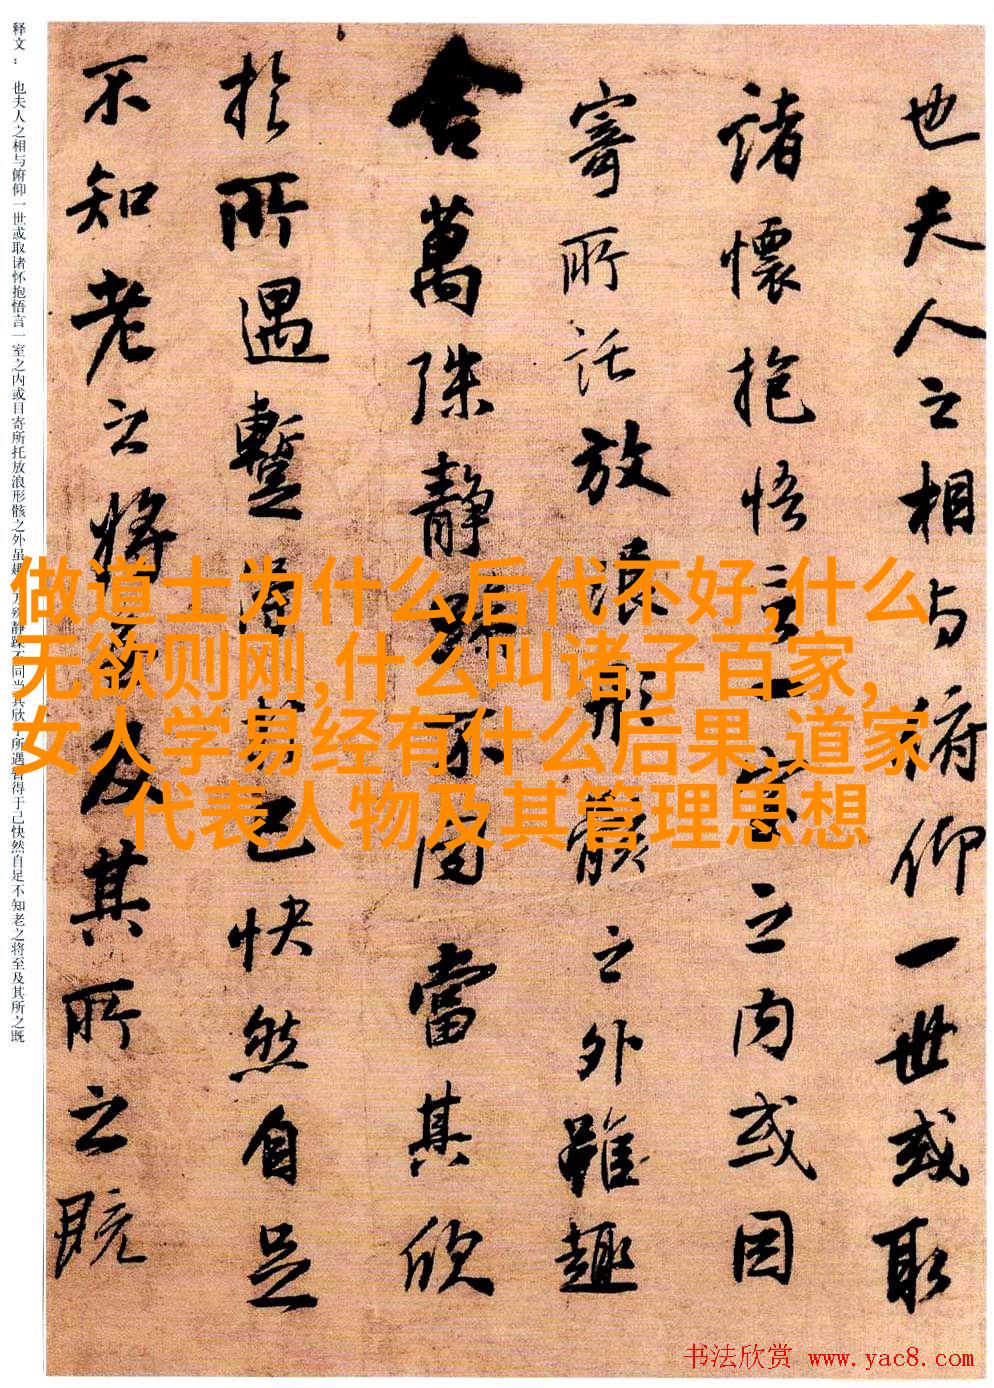 也夫人之相与俯仰一世或取
诸懷抱悟言一室之内或因
寄所託放浪形骸之外雖趣
舍萬殊静躁不同當其欣
於所遇暫得於己快然自足
不知老之将至及其所之既
释文： 也夫人之相与俯仰一世或取诸怀抱悟言一室之内或因寄所托放浪形骸之外虽趣 静躁不同当其欣 所遇暂得于己快然自足不知老之将至及其所之既
做道士为什么后代不好,什么
无欲则刚,什么叫诸子百家,
女人学易经有什么后果,道家
代表人物及其管理思想
书法欣赏 www.yac8.com